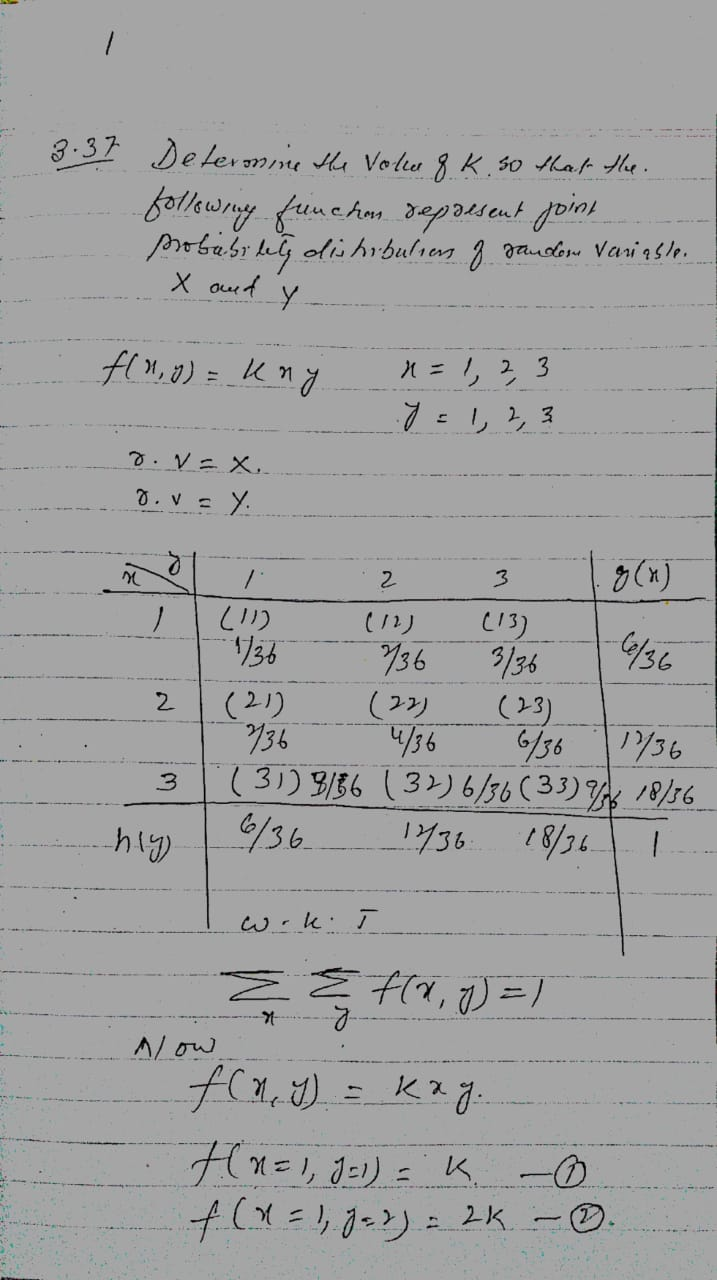 1
3.37 Determine the Value of K so that the.
following function represent joint
probability distributions of random Variable.
X and Y
f(x,y) = kxy x = 1, 2, 3
y = 1, 2, 3
r. v = X.
r. v = Y.
x y 1 2 3 g(x)
1 (11) (12) (13)
1/36 2/36 3/36 6/36
2 (21) (22) (23)
2/36 4/36 6/36 12/36
3 (31) 3/36 (32) 6/36 (33) 9/36 18/36
h(y) 6/36 12/36 18/36 1
w. k. T
Σ Σ f(x, y) = 1
x y
Now
f(x, y) = kxy.
f(x=1, y=1) = K. —①
f(x=1, y=2) = 2K —②.